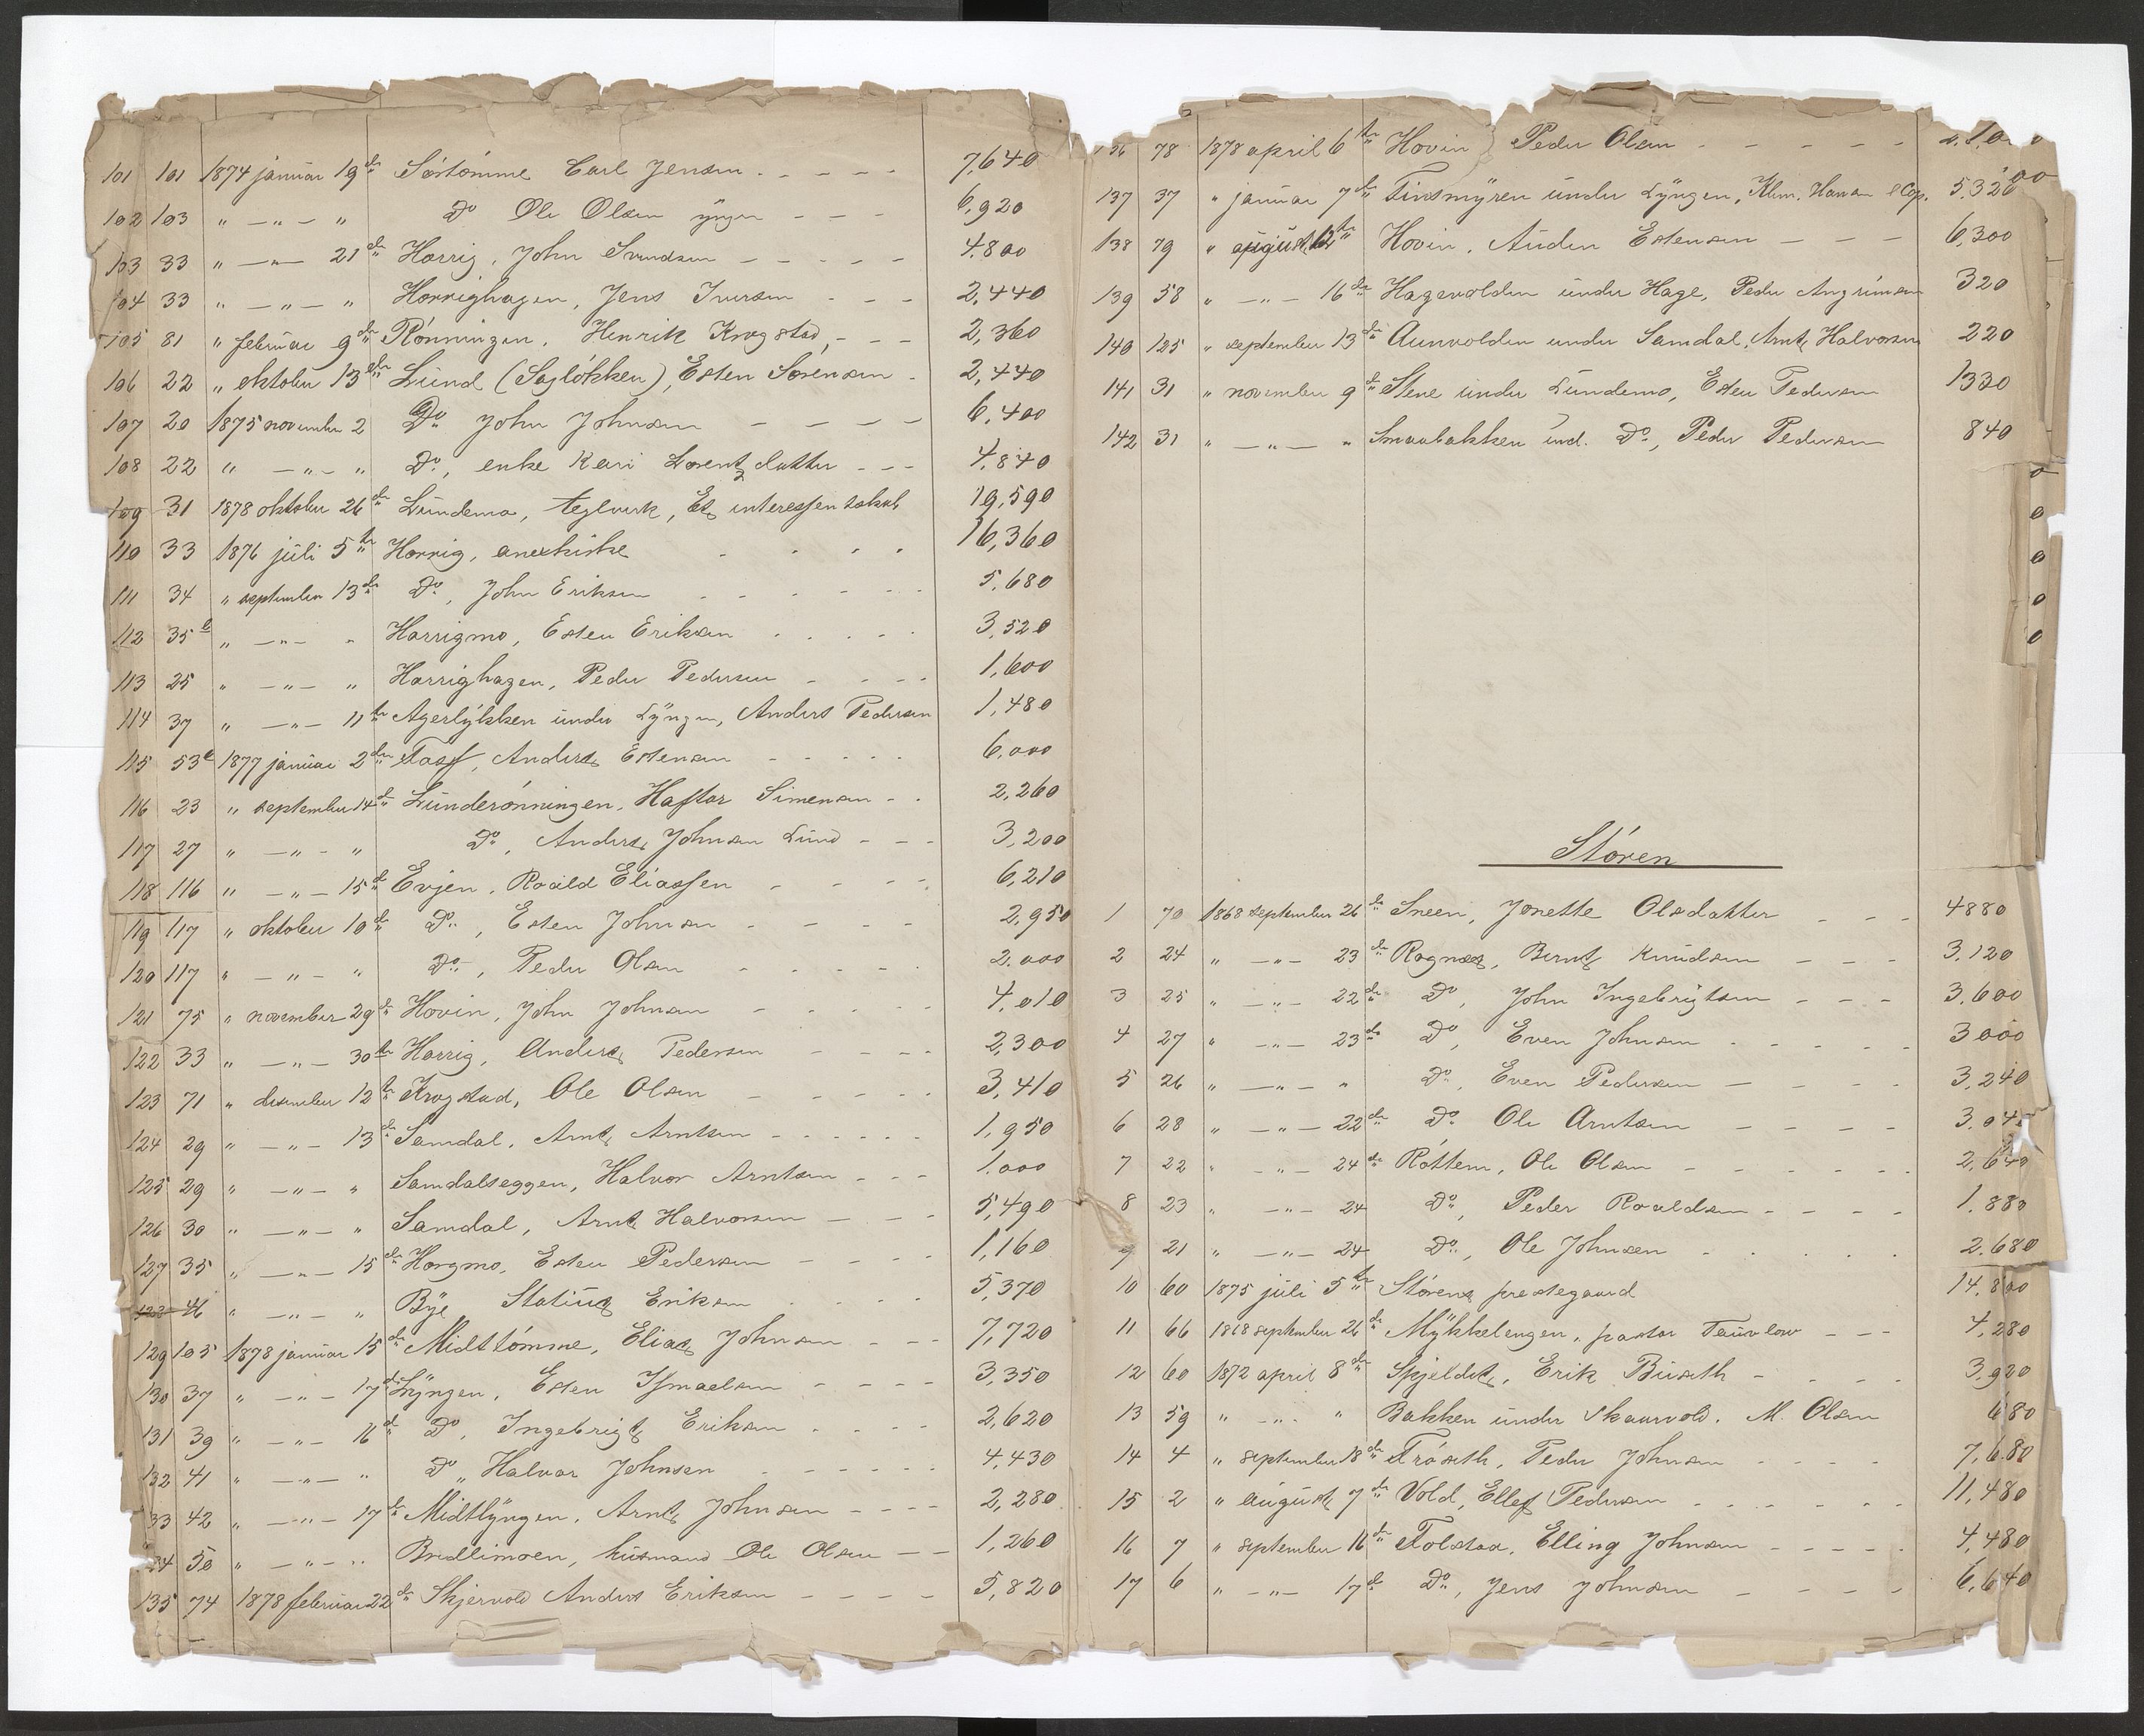 101 101 1874 januar 19de Sørtømme Carl Jensen 7,640
102 103 " — " — " Do Ole Olsen yngre 6,920
103 33 " — " — 21de Horrig, John Svendsen 4,800
104 33 " — " — " Horrighagen, Jens Iversen 2,440
105 81 " februar 9de Rønningen, Henrik Krogstad, 2,360
106 22 " oktober 13de Lund (Sagløkken), Esten Sørensen 2,440
107 20 1875 november 2 Do John Johnsen 6,400
108 22 " — " — " Do, enke Kari Lorentzdatter 4,840
109 31 1878 oktober 26de Lundemo, teglverk, Et interessentskab 19,590
110 33 1876 juli 5te Horrig, anexkirke 16,360
111 34 " september 13de Do, John Eriksen 5,680
112 35b " — " — " Horrigmo, Esten Eriksen 3,520
113 25 " — " — " Horrighagen, Peder Pedersen 1,600
114 37 " — " — 11te Agerlykken under Lyngen, Anders Pedersen 1,480
115 53 1877 januar 2den Foss, Anders Estensen 6,000
116 23 " september 14de Lunderønningen, Haftor Simensen 2,260
117 27 " — " — " Do, Anders Johnsen Lund 3,200
118 116 " — " — 15de Evjen, Roald Eliassen 6,210
119 117 " oktober 10de Do, Esten Johnsen 2,950
120 117 " — " — " Do, Peder Olsen 2.000
121 75 " november 29de Hovin, John Johnsen 4,010
122 33 " — " — 30te Horrig, Anders Pedersen 2,300
123 71 " desember 12te Krogstad, Ole Olsen 3,410
124 29 " — " — 13de Samdal, Arnt Arntsen 1,950
125 29 " — " — " Samdalseggen, Halvor Arntsen 1.000
126 30 " — " — " Samdal, Arnt Halvorsen 5,490
127 35 " — " — 15de Horgmo, Esten Pedersen 1,160
128 46 " — " — " Bye Statius Eriksen 5,370
129 105 1878 januar 15de Midttømme, Elias Johnsen 7,720
130 37 " — " — 17de Lyngen, Esten Ismaelsen 3,350
131 39 " — " — 16de Do, Ingebrigt Eriksen 2,620
132 41 " — " — " Do, Halvor Johnsen 4,430
33 42 " — " — 17de Midtlyngen, Arnt Johnsen 2,280
34 50 " — " — " Bredlimoen, husmand Ole Olsen 1,260
135 74 1878 februar 22de Skjervold Anders Eriksen 5,820
36 78 1878 april 6te Hovin Peder Olsen
137 37 " januar 7de Finsmyren under Lyngen, Klem. Hansen & Cop. 5,320
138 79 " august 12te Hovin, Auden Estensen 6,300
139 58 " — " — 16de Hagevolden under Hage, Peder Angrimsen 320
140 125 " september 13de Aunvolden under Samdal, Arnt Halvorsen 220
141 31 " november 9de Stene under Lundemo, Esten Pedersen 1330
142 31 " — " — " Smaabakken und. Do, Peder Pedersen 840
Støren
1 70 1868 september 26de Sneen, Jonette Olsdatter 4880
2 24 " — " — 23de Rognes, Bernt Knudsen 3,120
3 25 " — " — 22de Do, John Ingebrigtsen 3,600
4 27 " — " — 23de Do, Even Johnsen 3000
5 26 " — " — " Do, Even Pedersen 3,240
6 28 " — " — 22de Do Ole Arntsen 3,04
7 22 " — " — 24de Rottem, Ole Olsen 2,640
8 23 " — " — 24 Do, Peder Roaldsen 1.880
9 21 " — " — 24 Do, Ole Johnsen 2.680
10 60 1875 juli 5te Størens prestegaard 14,800
11 66 1868 september 26de Mykkelengen, pastor Tauvlow 4,280
12 60 1872 april 8de Spjeldet, Erik Buseth 3,920
13 59 " — " — " Bakken under Skaarvold, M. Olsen 680
14 4 " september 18de Frøseth, Peder Johnsen 7,680
15 2 " august 7de Vold, Ellef Pedersen 11,480
16 7 " september 16de Folstad, Elling Johnsen 4,480
17 6 " — " — 17de Do, Jens Johnsen 6,640